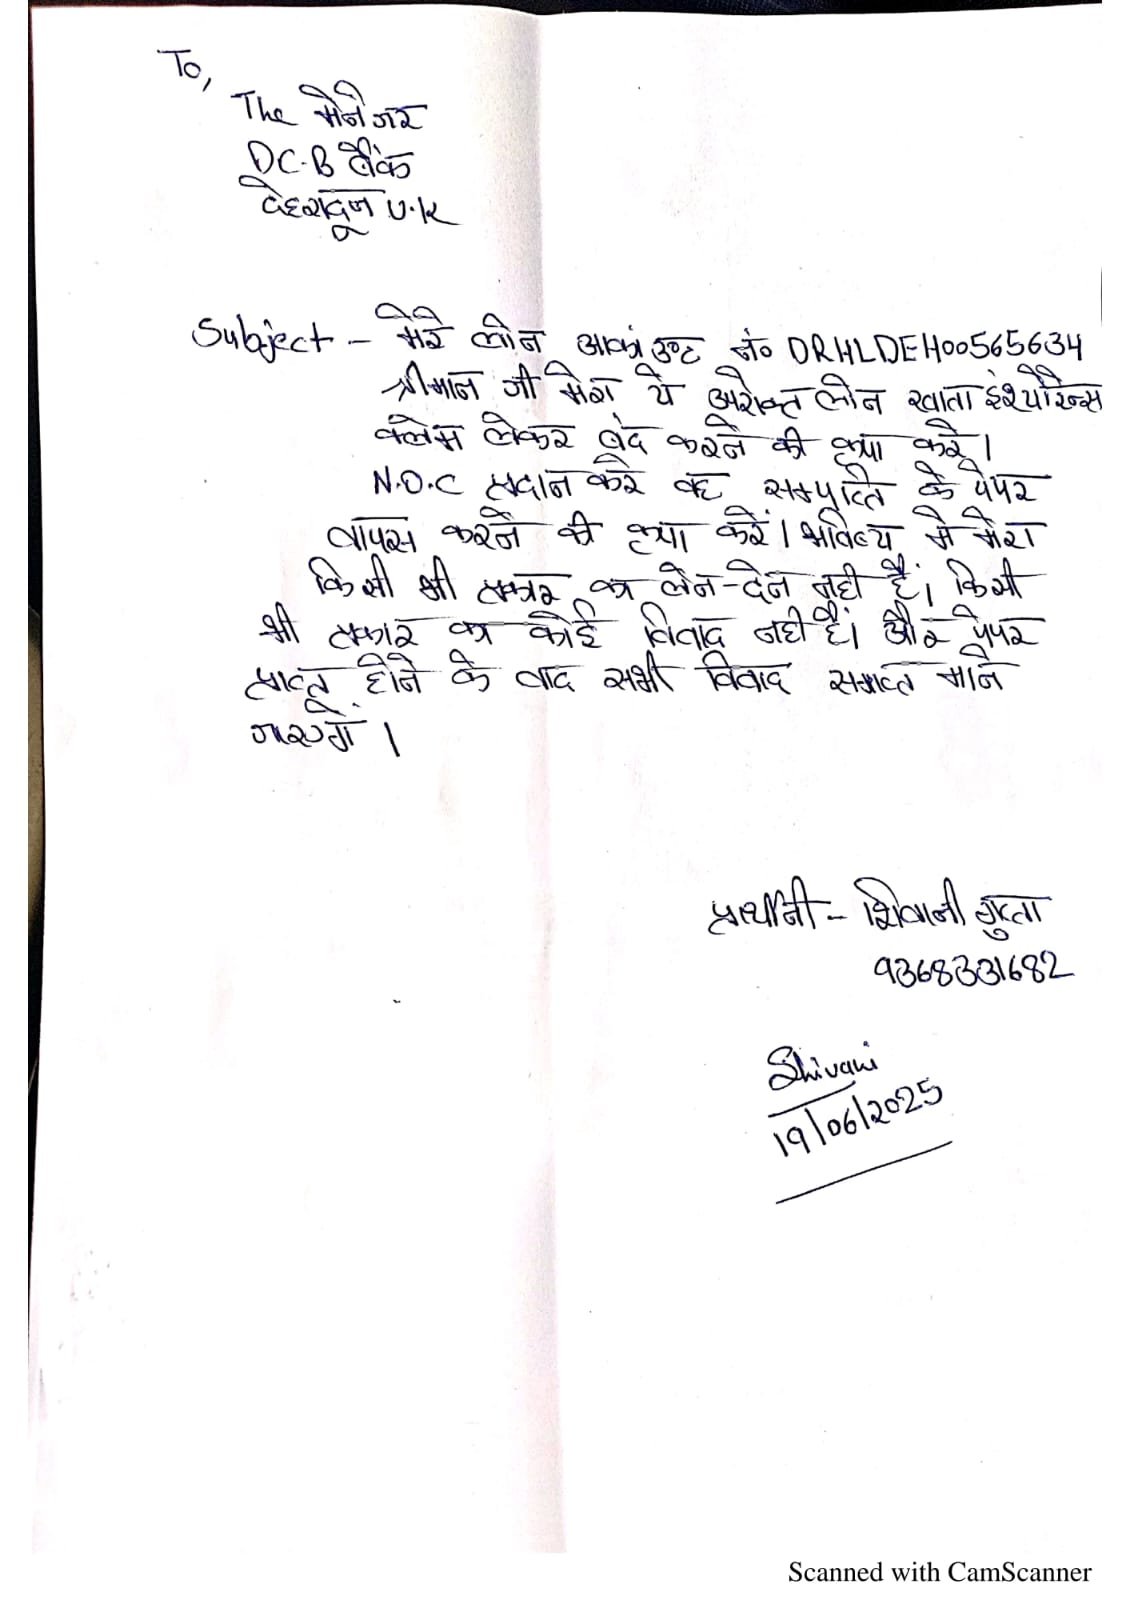 To,
The मेनेजर
D.C.B बैंक
देहरादून U.K
Subject - मेरे लोन आकांउण्ट नं० DRHLDEH00565634
श्रीमान जी मेरा ये उपरोक्त लोन खाता इंश्योरेन्स
क्लेम लेकर बंद करने की कृपा करे।
N.O.C प्रदान करे वह सम्पत्ति के पेपर
वापस करने की कृपा करें। भविष्य मे मेरा
किसी भी प्रकार का लेन-देन नही है। किसी
भी प्रकार का कोई विवाद नही है। और पेपर
प्राप्त होने के बाद सभी विवाद समाप्त माने
जाएगें।
प्रार्थीनी - शिवानी गुप्ता
9368331682
Shivani
19/06/2025
Scanned with CamScanner